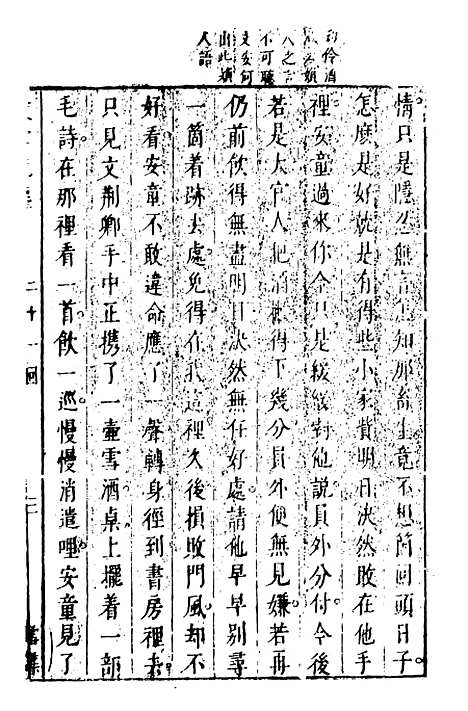 劉伶酒
之言
不可聽
文安何
出此婦
人語
情只是隱忍無言怎知那畜生竟不想箇回頭日子
怎麽是好就是有得些小家貲明日決然敗在他手
裡安童過來你今只是緩緩對他說員外分付今後
若是大官人把酒撇得下幾分員外便無見嫌若再
仍前飲得無盡明日決然無任好處請他早早別尋
一箇着跡去處免得在我這裡久後損敗門風却不
好看安童不敢違命應了一聲轉身徑到書房裡去
只見文荊卿手中正携了一壷雪酒桌上擺着一部
毛詩在那裡看一首飲一巡慢慢消遣哩安童見了
二十一回